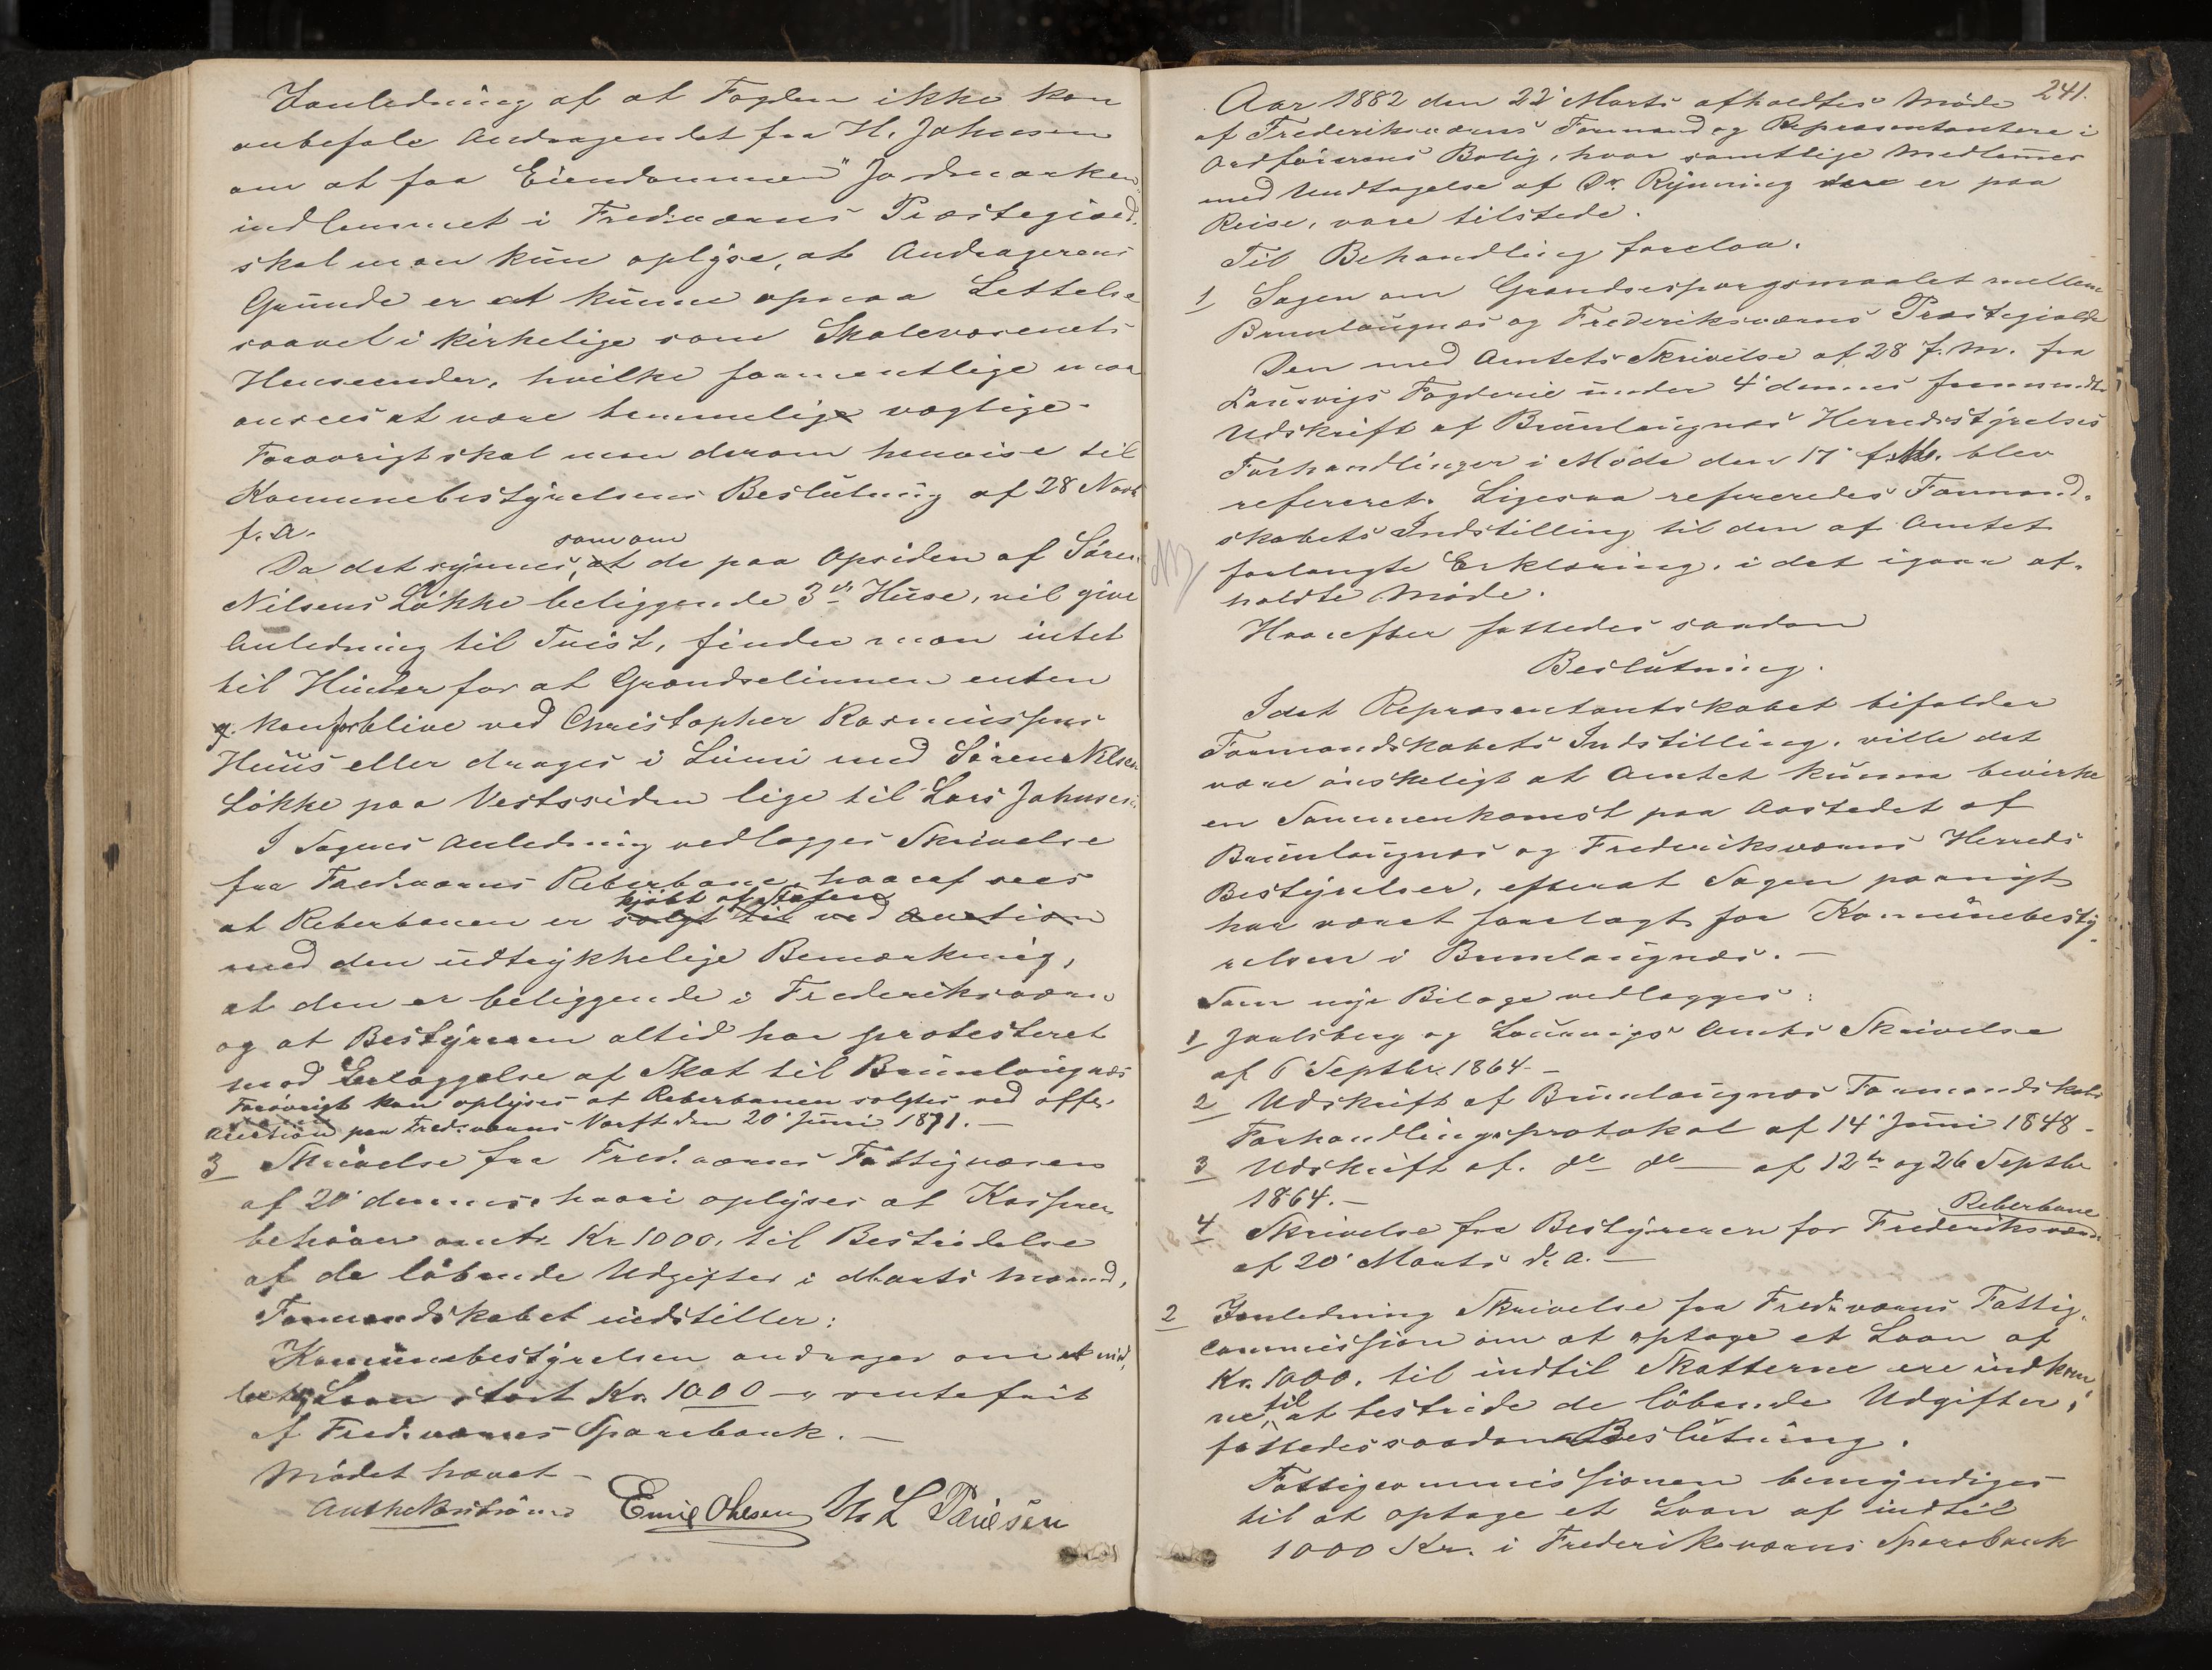 Ianledning af at Fogden ikke kan
anbefale Andragendet fra H. Johnsen
om at faa Eiendommen "Jordmarken"
indlemmet i Fred:værns Præstegjæld,
skal man kun oplyse, at Andragerens
Grunde er at kunne opnaa Lettelse
saavel i kirkelige som Skolevæsenets
Henseender, hvilke formentlige maa
ansees at være temmelig vægtige.
Forøvrigt skal man derom henvise til
Kommunebestyrelsens Beslutning af 28 Novb
f. A.
som om
Da det synes, at de paa Opsiden af Søren
Nilsens Løkke beliggende 3de Huse, vil give
Anledning til Tvist, finder man intet
til Hinder for at Grændselinien enten
kan forblive ved Christopher Rasmussens
Huus eller drages i Linie med Søren Nilsens
Løkke paa Vestsiden lige til Lars Johnsen.
I Sagens Anledning vedlægges Skrivelse
fra Fred:værns Reberbane, hvoraf sees
kjøbt af Staten
at Reberbanen er solgt til ved Auction
med den udtrykkelige Bemærkning,
at den er beliggende i Frederiksværn
og at Bestyreren altid har protesteret
mod Erlæggelse af Skat til Brunlaugnæs
Forøvrigt kan oplyses at Reberbanen solgtes ved offt.
Auction paa Fred:værns Værft den 20' Juni 1871. —
3 Skrivelse fra Fred.værns Fattigvæsen
af 20' dennes hvori oplyses at Kassen
behøver Kr 1000, til Bestridelse
af de løbende Udgifter i Marts Maaned,
Formandskabet indstiller:
Kommunebestyrelsen andrager om et mid
lertg Laan stort Kr. 1000 — rentefrit
af Fred.værns Sparebank. —
Mødet hævet —
Emil Olsen
241.
Aar 1882 den 22' Marts afholdtes Møde
af Frederiksværns Formænd og Repræsentantere i
Ordførerens Bolig, hvor samtlige Medlemer
med Undtagelse af Dr. Rynning der er paa
Reise, vare tilstede.
Til Behandling forelaa.
1 Sagen om Grændsespørgsmaalet mellem
Brunlaugnæs og Frederiksværns Præstegjælde
Den med Amtets Skrivelse af 28 f. M. fra
Laurvigs Fogderie under 4' dennes fremsendte
Udskrift af Brunlaugnæs Herredsstyrelses
Forhandlinger i Møde den 17' f. M. blev
refereret. Ligesaa refereredes Formand-
skabets Indstilling til den af Amtet
forlangte Erklæring, i det igaar af-
holdte Møde.
Hvorefter fattedes saadan
Beslutning.
Idet Repræsentantskabet bifalder
Formandskabets Indstilling, ville det
være ønskeligt at Amtet kunne bevirke
en Sammenkomst paa Aastedet af
Brunlaugnæs og Frederiksværns Herreds
Bestyrelser, efterat Sagen paanyt
har været forelagt for Kommunebesty-
relsen i Brunlaugnæs. —
Som nye Bilage vedlægges:
1 Jarlsberg og Laurvigs Amts Skrivelse
af 6 Septbr. 1864. —
2 Udskrift af Brunlaugnæs Formandskabs
Forhandlingsprotokol af 14' Juni 1848 -
3 Udskrift af. do do — af 12te og 26 Septbr
1864. —
Reberbane
4 Skrivelse fra Bestyreren for Frederiksværns
af 20' Marts d. A. —
2 Ianledning Skrivelse fra Fred:værns Fattig-
commission om at optage et Laan af
Kr. 1000. til indtil Skatterne ere indkom
ne, til at bestride de løbende Udgifter,
fattedes saadan Beslutning.
Fattigcommissionen bemyndiges
til at optage et Laan af indtil
1000 Kr. i Frederiksværns Sparebank